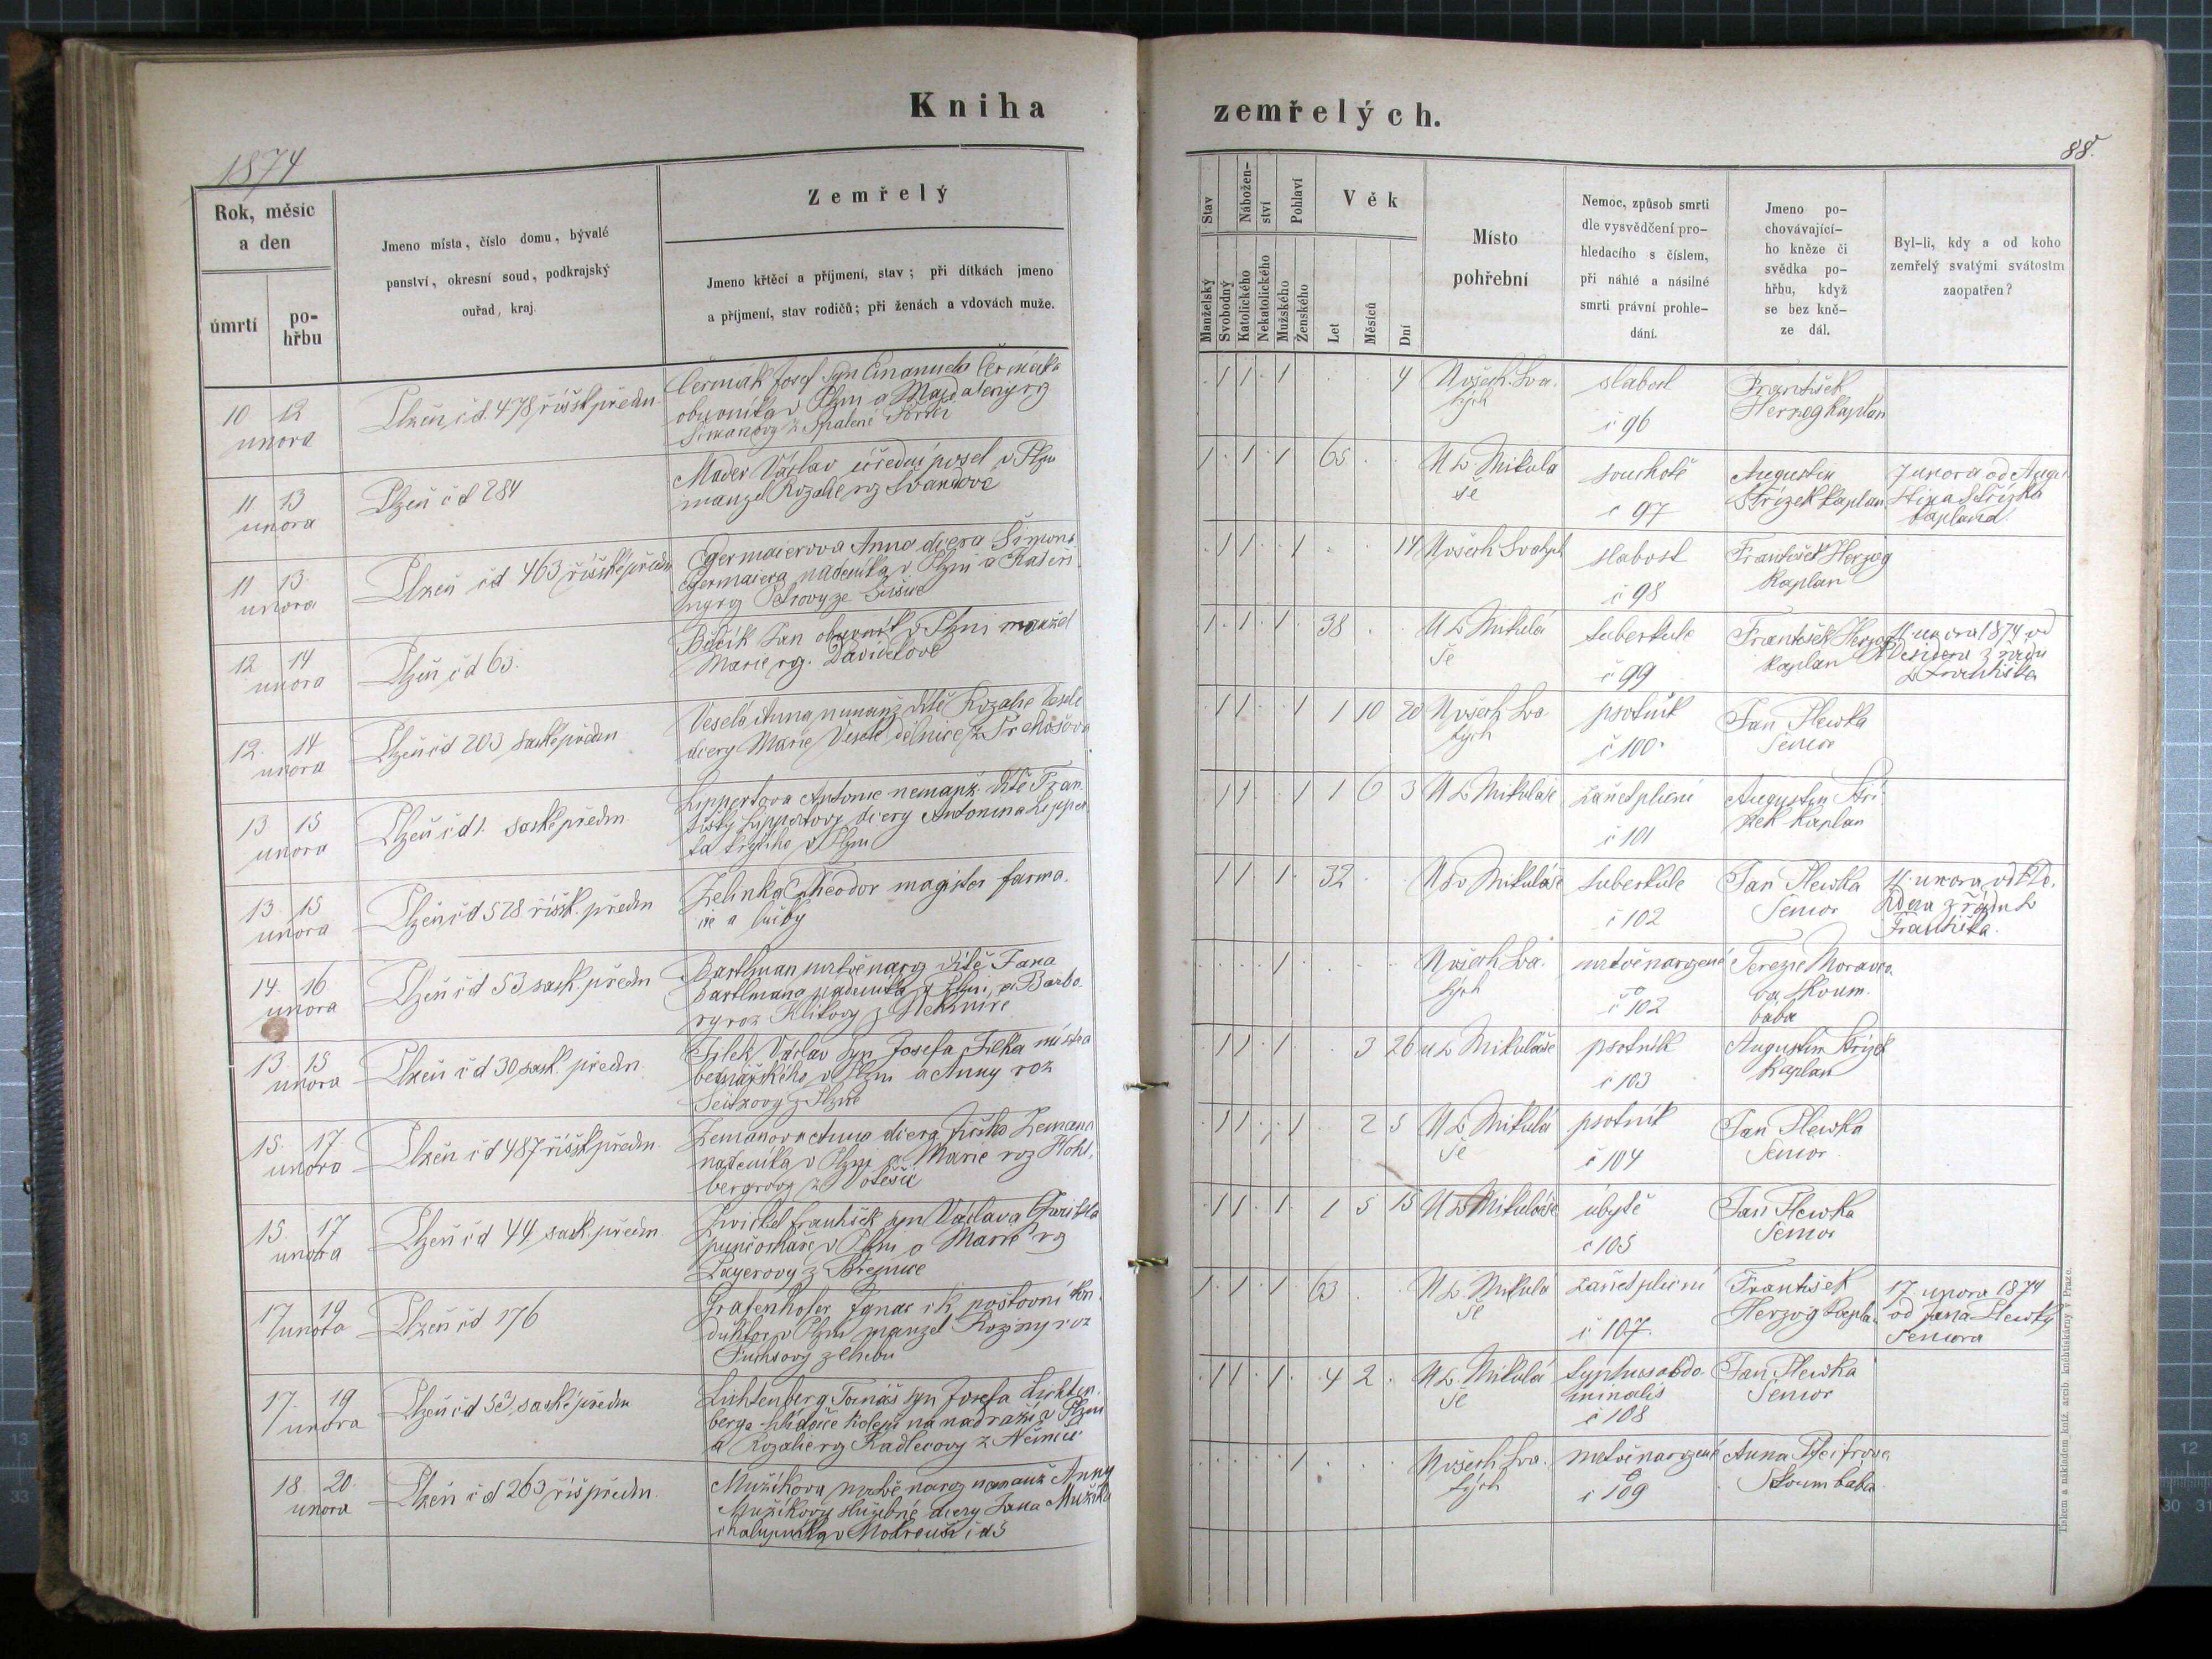 Kniha
zemřelých.
1874
88.
Rok, měsíc
a den
úmrtí
po-
hřbu
Jmeno místa, číslo domu, bývalé
panství, okresní soud, podkrajský
ouřad, kraj.
Zemřelý
Jmeno křtěcí a příjmení, stav; při dítkách jmeno
a příjmení, stav rodičů; při ženách a vdovách muže.
Stav
Nábožen-
ství
Pohlaví
Věk
Manželský
Svobodný
Katolického
Nekatolického
Mužského
Ženského
Let
Měsíců
Dní
Místo
pohřební
Nemoc, způsob smrti
dle vysvědčení pro-
hledacího s číslem,
při náhlé a násilné
smrti právní prohle-
dání.
Jmeno po-
chovávající-
ho kněze či
svědka po-
hřbu, když
se bez kně-
ze dál.
Byl-li, kdy a od koho
zemřelý svatými svátostmi
zaopatřen?
10 12
unora
Plzeň č d. 478 říšsk předm
Čermák Josef syn Emanuela Čermáka
obuvníka v Plzni a Magdaleny rz
Šimanovy z Spalené Poříčí
1 1 1 4
U všech Sva-
tých
slabost
č 96
František
Herzog kaplan
11 13
unora
Plzeň č d 284
Mader Václav úřední posel v Plzni
manžel Rozalie rz Švandové
1 1 1 65
U S Mikulá
še
souchotě
č 97
Augustin
Střízek kaplan
7 unora od Augu
stina Střízka
kaplana
11 13
unora
Plzeň čd 463 říšské předm
Egermaierova Anna dcera Šimona
Egermaiera nadeníka v Plzni a Kateři
ny rz Petrovy ze
1 1 1 14
U všech Svatých
slabost
č 98
František Herzog
Kaplan
12 14
unora
Plzeň č d 63
Jan obuvník v Plzni manžel
Marie rz. Davidelove
1 1 1 38
U S Mikulá
še
tuberkule
č 99
František Herzog
kaplan
11 unora 1874 od
Desidera z řádu
S Františka
12. 14
unora
Plzeň č d 203 saské předm
Veselá Anna nemanž dítě Rozalie Veselé
dcery Marie Veselé dělnice z Prchošova
1 1 1 1 10 20
U všech Sva
tých
psotník
č 100
Jan Slewka
Senior
13 15
unora
Plzeň č d 1. saské předm
Lippertova Antonie nemanž. dítě Fran
tišky Lippertovy dcery Antonina Lipper
ta v Plzni
1 1 1 1 6 3
U S Mikuláše
zánět plicní
č 101
Augustin Stří
zek kaplan
13 15
unora
Plzeň č d 528 říšsk. předm
Zelinka Theodor magister farma
cie a lučby
1 1 1 32
U Sv Mikuláše
tuberkule
č 102
Jan Slewka
Senior
11. unora od De
sidera z řádu S
Františka.
14. 16
unora
Plzeň č d 53 sask. předm
Bartlman mrtvě naroz dítě Jana
Bartlmana nadeníka v Plzni a Barbo
ry roz Klikovy z Nekmíře
1
U všech Sva
tých
mrtvě narozené
č 102
Terezie Moravco
va zkoum.
bába
13 15
unora
Plzeň č d 30 sask. předm
Jilek Václav syn Josefa Jilka mistra
bednářského v Plzni a Anny roz
Seitzovy z Plzně
1 1 1 3 26
u S Mikuláše
psotník
č 103
Augustin Střízek
Kaplan
15. 17
unora
Plzeň č d 487 říšsk předm
Zemanova Anna dcera Jiřího Zemana
nadeníka v Plzni a Marie roz Hohl
bergrovy z
1 1 1 2 5
U S Mikulá
še
psotník
č 104
Jan Slewka
Senior
15. 17
unora
Plzeň č d 44 sask. předm
Zwickel František syn Václava
punčocháře v Plzni a Marie rz
z Březnice
1 1 1 1 5 15
U S Mikuláše
úbytě
č 105
Jan Slewka
Senior
17. 19
unora
Plzeň čd 176
Grafenhofer Ignac c k poštovní kon
duktor v Plzni manžel Roziny roz
Fuchsovy z Chebu
1 1 1 63
U S. Mikulá
še
zánět plicní
č 107
František
Herzog kapla.
17. unora 1874
od Jana Slewky
Seniora
17. 19
unora
Plzeň č d 53 saské předm
Lichtenberg Tomáš syn Josefa Lichten
berga hlídače kolejí na nádraží v Plzni
a Rozalie rz Kadlecovy z Němčic
1 1 1 4 2
U S. Mikulá
še
typhus abdo
minalis
č 108
Jan Slewka
Senior
18. 20.
unora
Plzeň č d 263 říš předm
Mužíkova mrtvě naroz nemanž Anny
Mužíkovy služebné dcery Jana Mužíka
chalupníka v Mokrouši č d 5
1
U všech Sva
tých
mrtvě narozené
č 109
Anna Pfeifrova
zkoum baba
Tiskem a nákladem kníž. arcib. knihtiskárny v Praze.